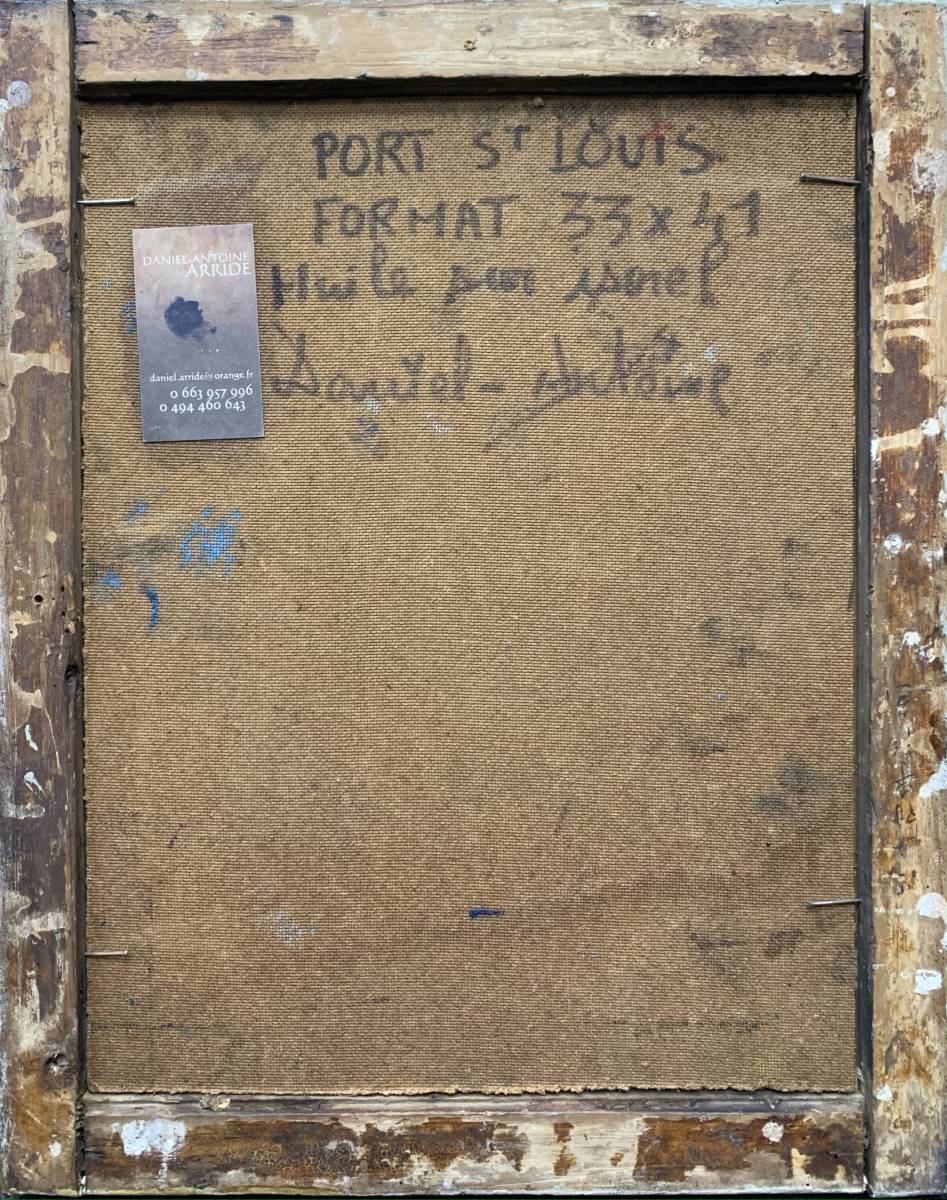 PORT ST LOUIS
FORMAT 33 x 41
Huile sur isorel
Daniel-Antoine
DANIEL-ANTOINE
ARRIDE
daniel.arride@orange.fr
0 663 957 996
0 494 460 643